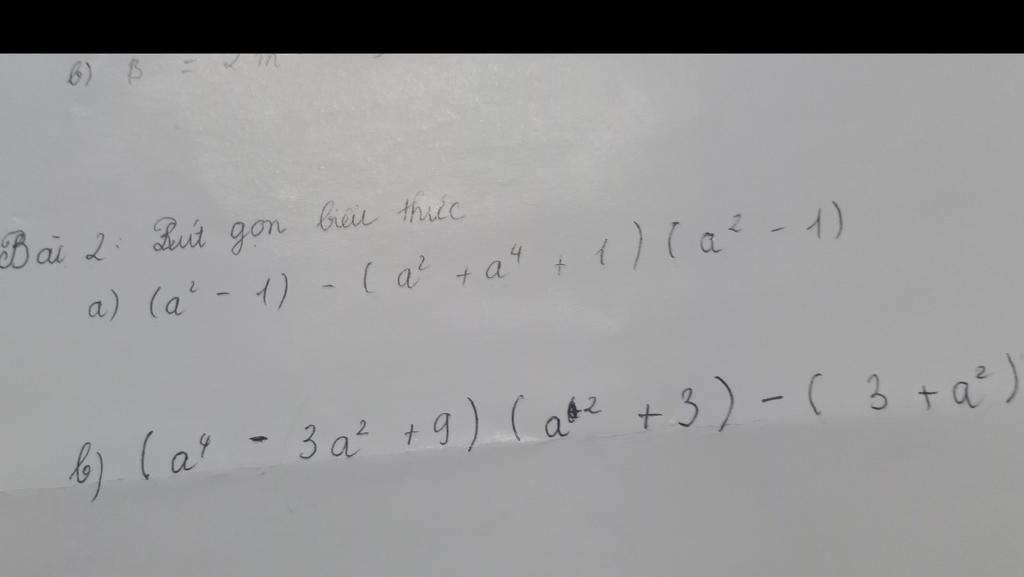 b) B = 2m
Bài 2: Rút gọn biểu thức
a) (a² - 1) - (a² + a⁴ + 1)(a² - 1)
b) (a⁴ - 3a² + 9)(a² + 3) - (3 + a²)